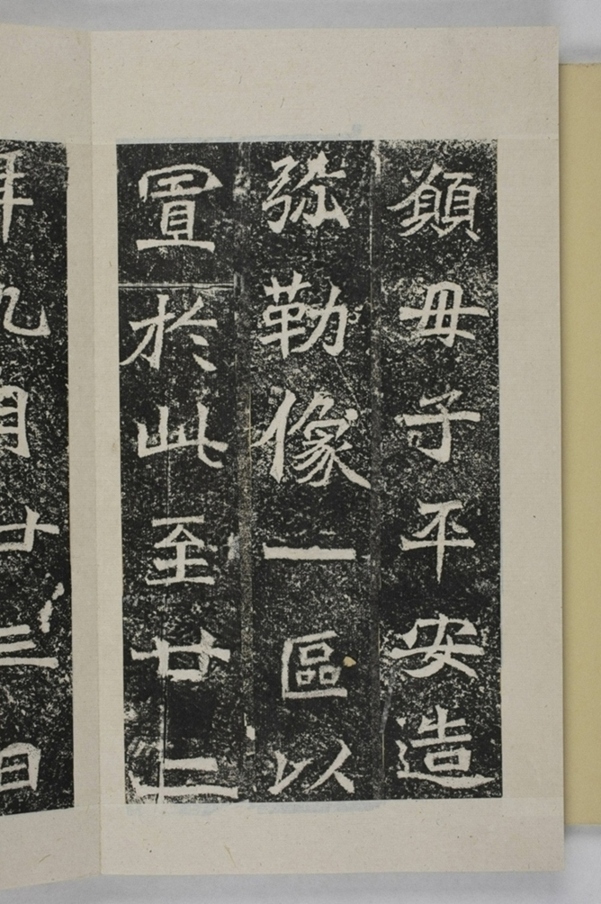 願母子平安造
弥勒像一區以
置於此至廿二
年九月廿三日